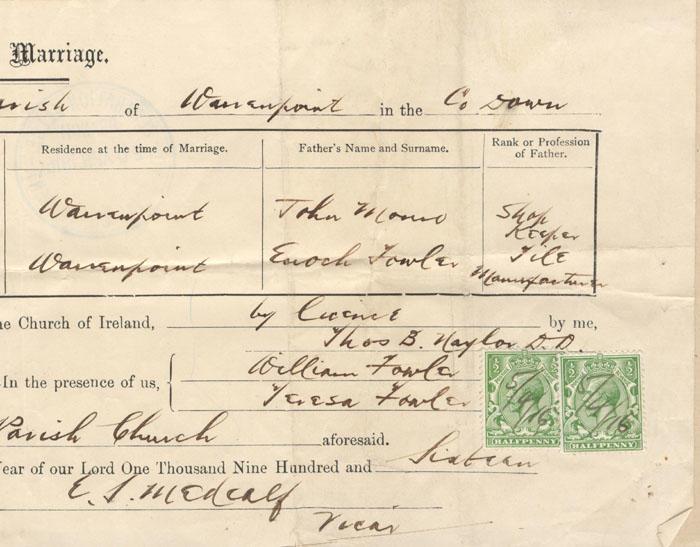 Marriage.
arish of Warrenpoint in the Co Down
Residence at the time of Marriage. Father's Name and Surname. Rank or Profession of Father.
Warrenpoint John Monro Shop Keeper
Warrenpoint Enoch Fowler Tile Manufacturer
he Church of Ireland, by licence by me,
Thos B. Naylor D.D.
In the presence of us, William Fowler
Teresa Fowler
½ ½ ½ ½
5/9/16 5/9/16
HALFPENNY HALFPENNY
Parish Church aforesaid.
Year of our Lord One Thousand Nine Hundred and Sixteen
Medcalf
Vicar